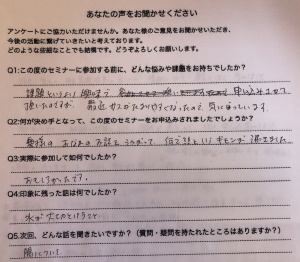 あなたの声をお聞かせください
アンケートにご協力いただけませんか。あなた様のご意見をお聞かせいただき、
今後の活動に繋げていきたいと考えております。
どのような些細なことでも結構です。どうぞよろしくお願いします。
Q1:この度のセミナーに参加する前に、どんな悩みや課題をお持ちでしたか?
課題というより 興味で 申し込みさせて
頂いたのですが、最近 なったので 気になっています。
Q2:何が決め手となって、この度のセミナーをお申込みされましたでしょうか?
お話を
Q3:実際に参加して如何でしたか?
おもしろかったです。
Q4:印象に残った話は何でしたか?
水が大切ということ
Q5:次回、どんな話を聞きたいですか?(質問・疑問を持たれたところはありますか?)
腸について